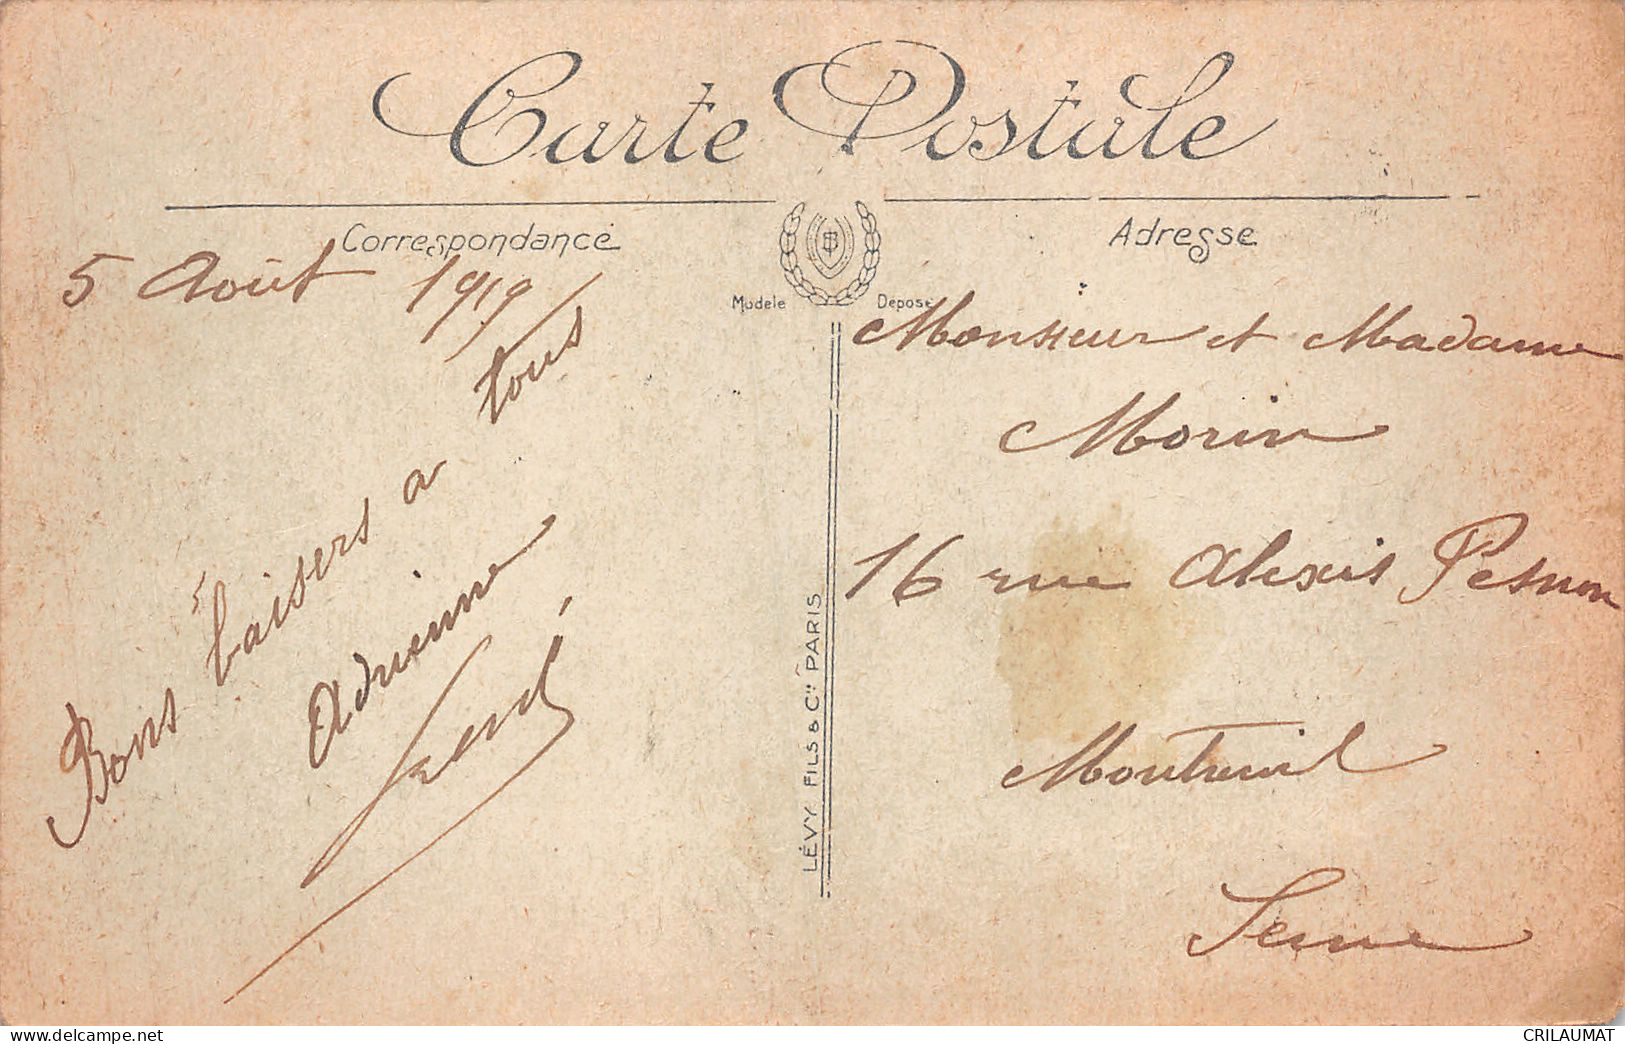 Carte Postale
Correspondance
Adresse
Modèle Déposé
5 Août 1919
Bons baisers a tous
Adrienne
Monsieur et Madame
Morin
16 rue Alexis Pesnon
Montreuil
Seine
LÉVY FILS & Cie PARIS
delcampe.net
CRILAUMAT